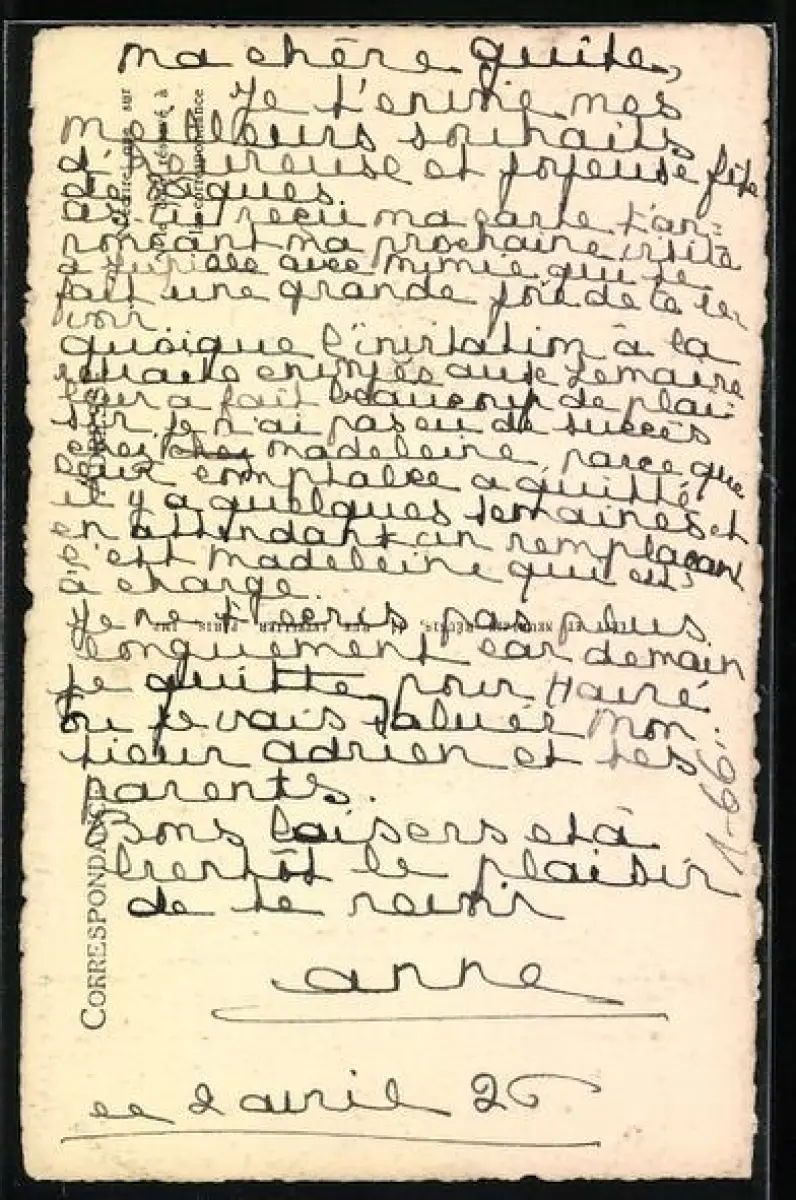 ma chère guite,
Je t'envoie mes
meilleurs souhaits
d'heureuse et joyeuse fête
de Pâques.
as-tu reçu ma carte t'an-
nonçant ma prochaine visite
à avec mimie qui se
fait une grande joie de te re
voir
quoique l'invitation à la
aux Lemaire
leur a fait beaucoup de plai
sir je n'ai pas eu de succès
chez madeleine, parce que
leur comptable a quitté
il y a quelques semaines et
en attendant un remplaçant
c'est madeleine qui est
à charge.
Je ne t'écris pas plus
longuement car demain
je quitte pour Havré
où je vais saluée mon
sieur adrien et ses
parents.
Bons baisers et à
bientôt le plaisir
de te revoir
anne
le 2 avril 26
1-66-
CORRESPONDANCE
la correspondance